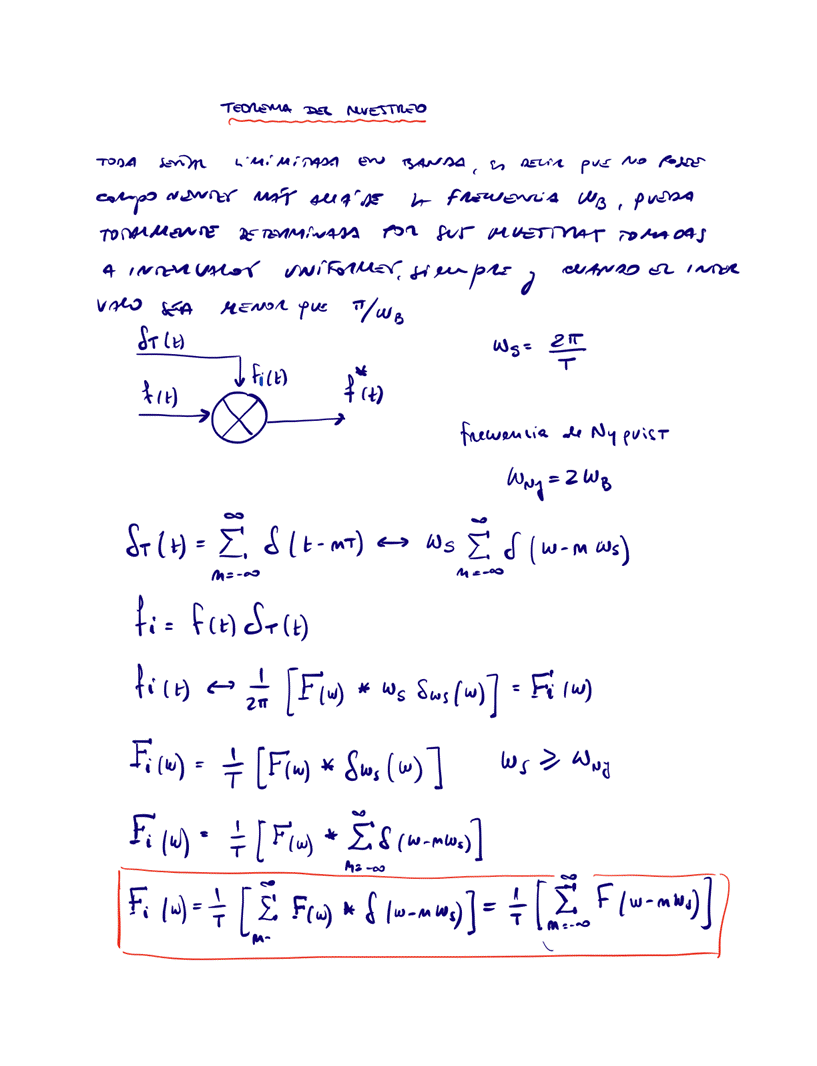 TEOREMA DEL MUESTREO
TODA SEÑAL LIMITADA EN BANDA, es decir que no posee
componentes más allá de la frecuencia ω_B, queda
TOTALMENTE DETERMINADA POR SUS MUESTRAS TOMADAS
A INTERVALOS UNIFORMES, siempre y CUANDO EL INTER
VALO SEA MENOR que π/ω_B
δ_T(t)
ω_S = 2π/T
f_i(t)
f(t)
f*(t)
frecuencia de Nyquist
ω_Ny = 2ω_B
δ_T(t) = ∑_{n=-∞}^{∞} δ(t-nT) ↔ ω_S ∑_{n=-∞}^{∞} δ(ω-nω_S)
f_i = f(t) δ_T(t)
f_i(t) ↔ 1/2π [F(ω) * ω_S δ_ωs(ω)] = F_i(ω)
F_i(ω) = 1/T [F(ω) * δ_ωs(ω)]
ω_S ⩾ ω_Ny
F_i(ω) = 1/T [F(ω) * ∑_{n=-∞}^{∞} δ(ω-nω_S)]
F_i(ω) = 1/T [∑_{n-}^{∞} F(ω) * δ(ω-nω_S)] = 1/T [∑_{n=-∞}^{∞} F(ω-nω_S)]